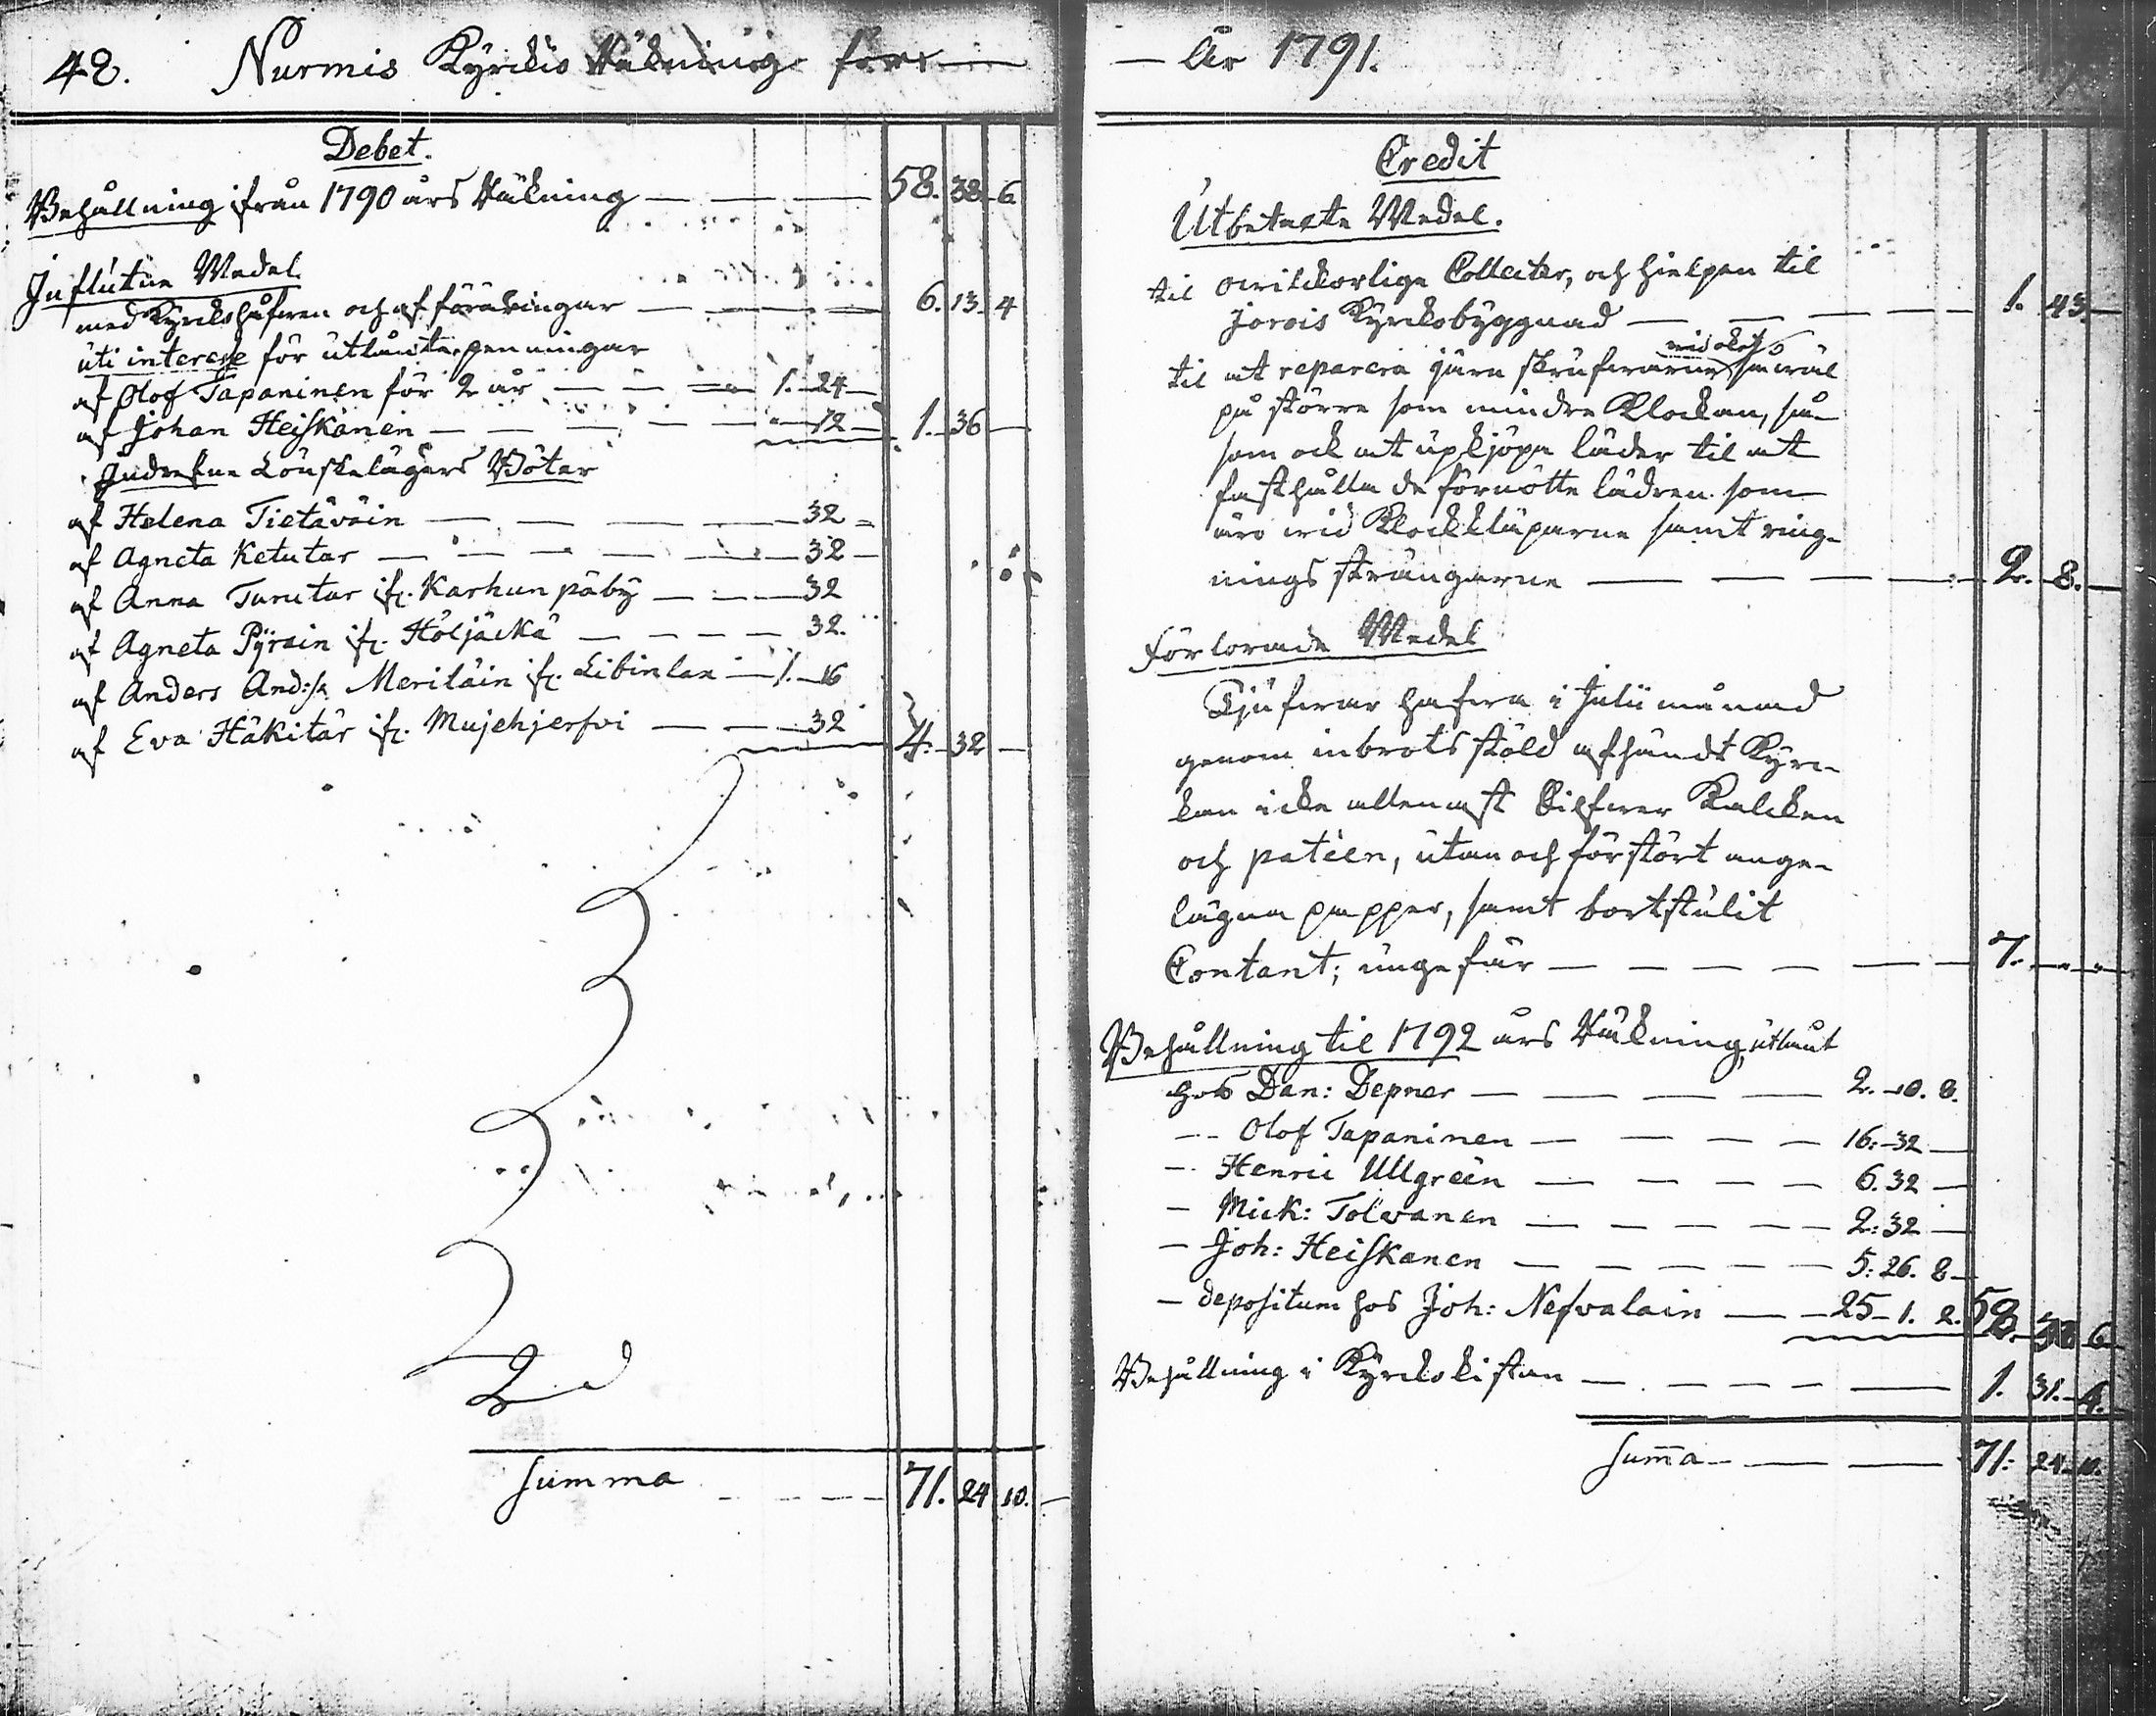 48. Nurmis Kyrckio Räkning för
Debet.
Behållning ifrån 1790 års Räkning — — — 58. 38. 6
Influtne Medel
med Kyrckohåfwen och af förähringar — — — 6. 13. 4
uti interesse för utlånte penningar
af Olof Tapaninen för 2 år — — — 1. 24 —
af Johan Heiskanen — — — — 12 — 1. 36 —
Indrefne Lönskelägers Böter
af Helena Tietäväin — — — 32 —
af Agneta Ketutar — — — — 32 —
af Anna Turutar ifr. Karhunpäby — — 32
af Agneta Pyrsin ifr. Höljäckä — — — 32.
af Anders And:s. Meriläin ifr. Libinlax — 1. 16
af Eva Häkitär ifr. Mujehjerfvi — — 32 4. 32 —
Summa — — — 71. 24 10.
— År 1791.
Credit
Utbetalte Medel.
til owilckorlige Collecter, och hielpen til
Jorois Kyrckobyggnad — — — 1. 43. —
til at reparera järn skrufwarne wid oket så wäl
på större som mindre Klockan, så-
som ock at upkjöpa läder til at
fasthålla de förnötte lädren som
äro wid Klockkläparne samt ring-
nings strängarne — — — 2. 8. —
Förlorade Medel
Tjufwar hafwa i Julii månad
genom inbrots stöld afhändt Kyrc-
kan icke allenast Silfwer Kalcken
och patéen, utan och förstört ange-
lägna papper, samt bortstulit
Contant; ungefär — — — — 7. — —
Behållning til 1792 års Räkning, utlånt
hos Dan: Depner — — — 2. 10. 8.
-- Olof Tapaninen — — — — 16. 32 —
- Henric Ullgreen — — — — 6. 32 —
- Mick: Tolwanen — — — — 2: 32 —
- Joh: Heiskanen — — — — 5: 26. 8 —
- depositum hos Joh: Nefvalain — 25 - 1. 2. 58. 38 6
Behållning i Kyrckokistan — — — — 1. 31. 4.
Summa — — — 71. 24 10.